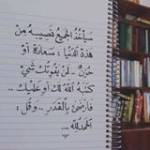 سيأخذ الجميع نصيبه من
هذه الدنيا ، سعادة أو
حزن .. لن يفوتك شيء
كتبه الله لك أو عليك ..
فارضى بالقدر .. وقل :
الحمدلله ..